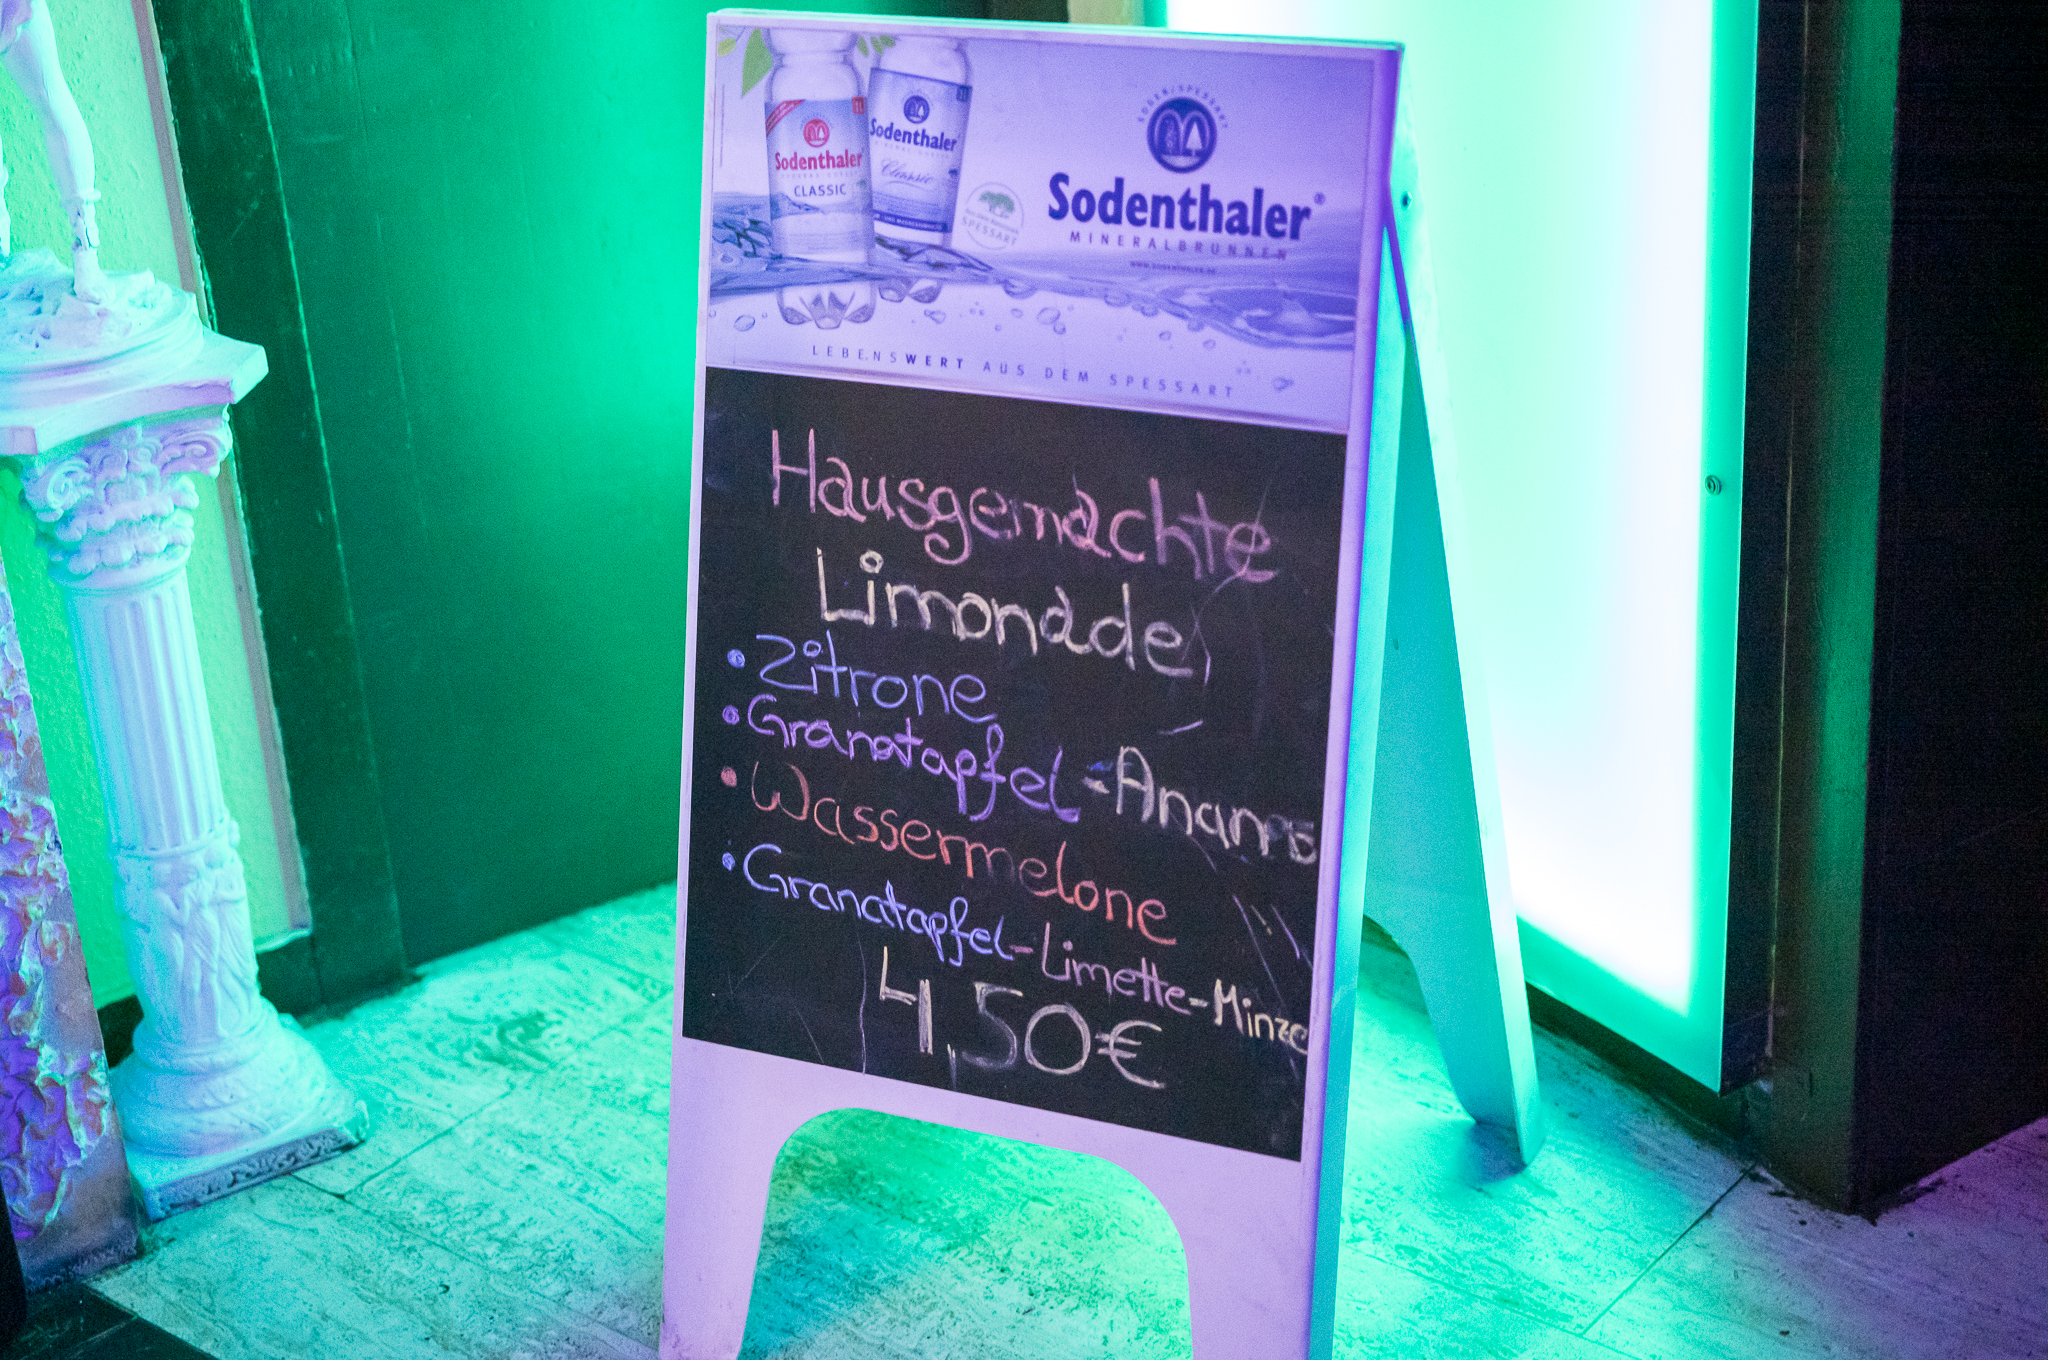 SODEN/SPESSART
Sodenthaler
CLASSIC
Sodenthaler
Classic
SPESSART
Sodenthaler®
MINERALBRUNNEN
LEBENSWERT AUS DEM SPESSART
Hausgemachte
Limonade
• Zitrone
• Granatapfel - Ananas
• Wassermelone
• Granatapfel-Limette-Minze
4,50€